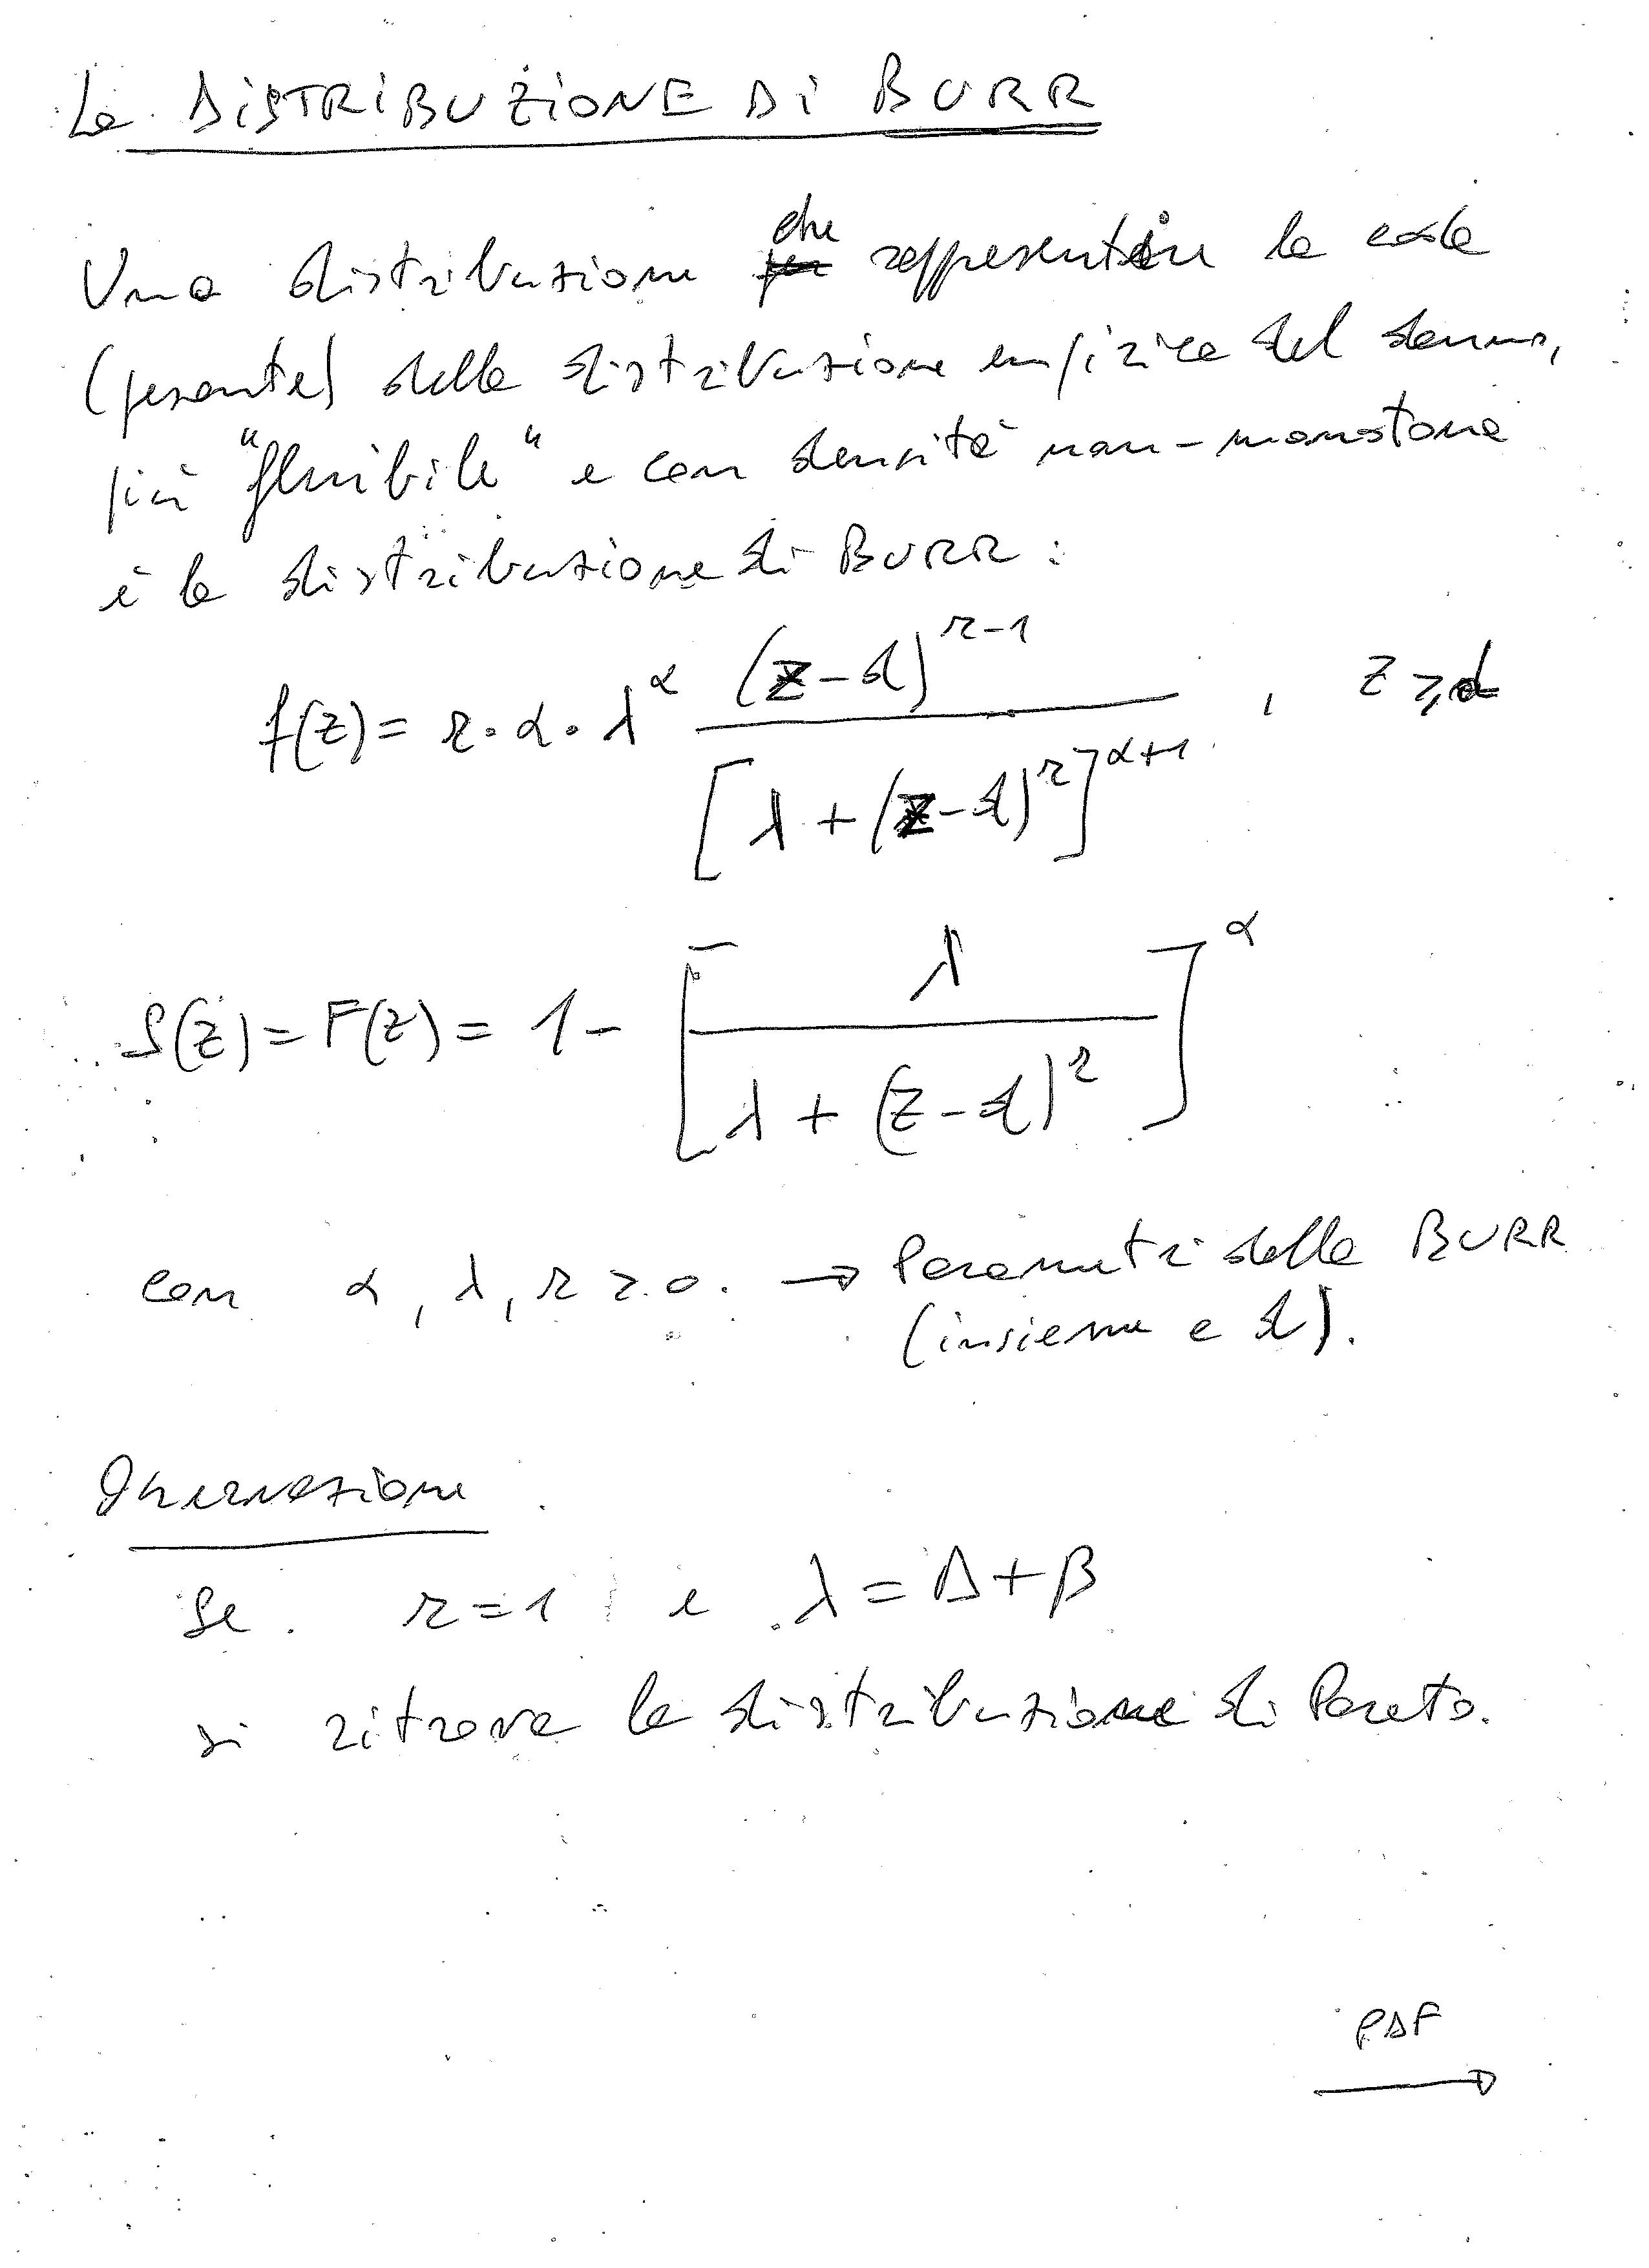 La DISTRIBUZIONE DI BURR
Una distribuzione che rappresenti la coda
(pesante) della distribuzione empirica del danno,
più "flessibile" e con densità non-monotona
è la distribuzione di BURR:
f(z) = r · α · λ^α (z-d)^{r-1} / [λ + (z-d)^r]^{α+1} , z ≥ d
S(z) = F(z) = 1 - [λ / (λ + (z-d)^r)]^α
con α, λ, r > 0. → Parametri della BURR
(insieme a d).
Osservazione
Se r = 1 e λ = Δ + β
si ritrova la distribuzione di Pareto.
PDF